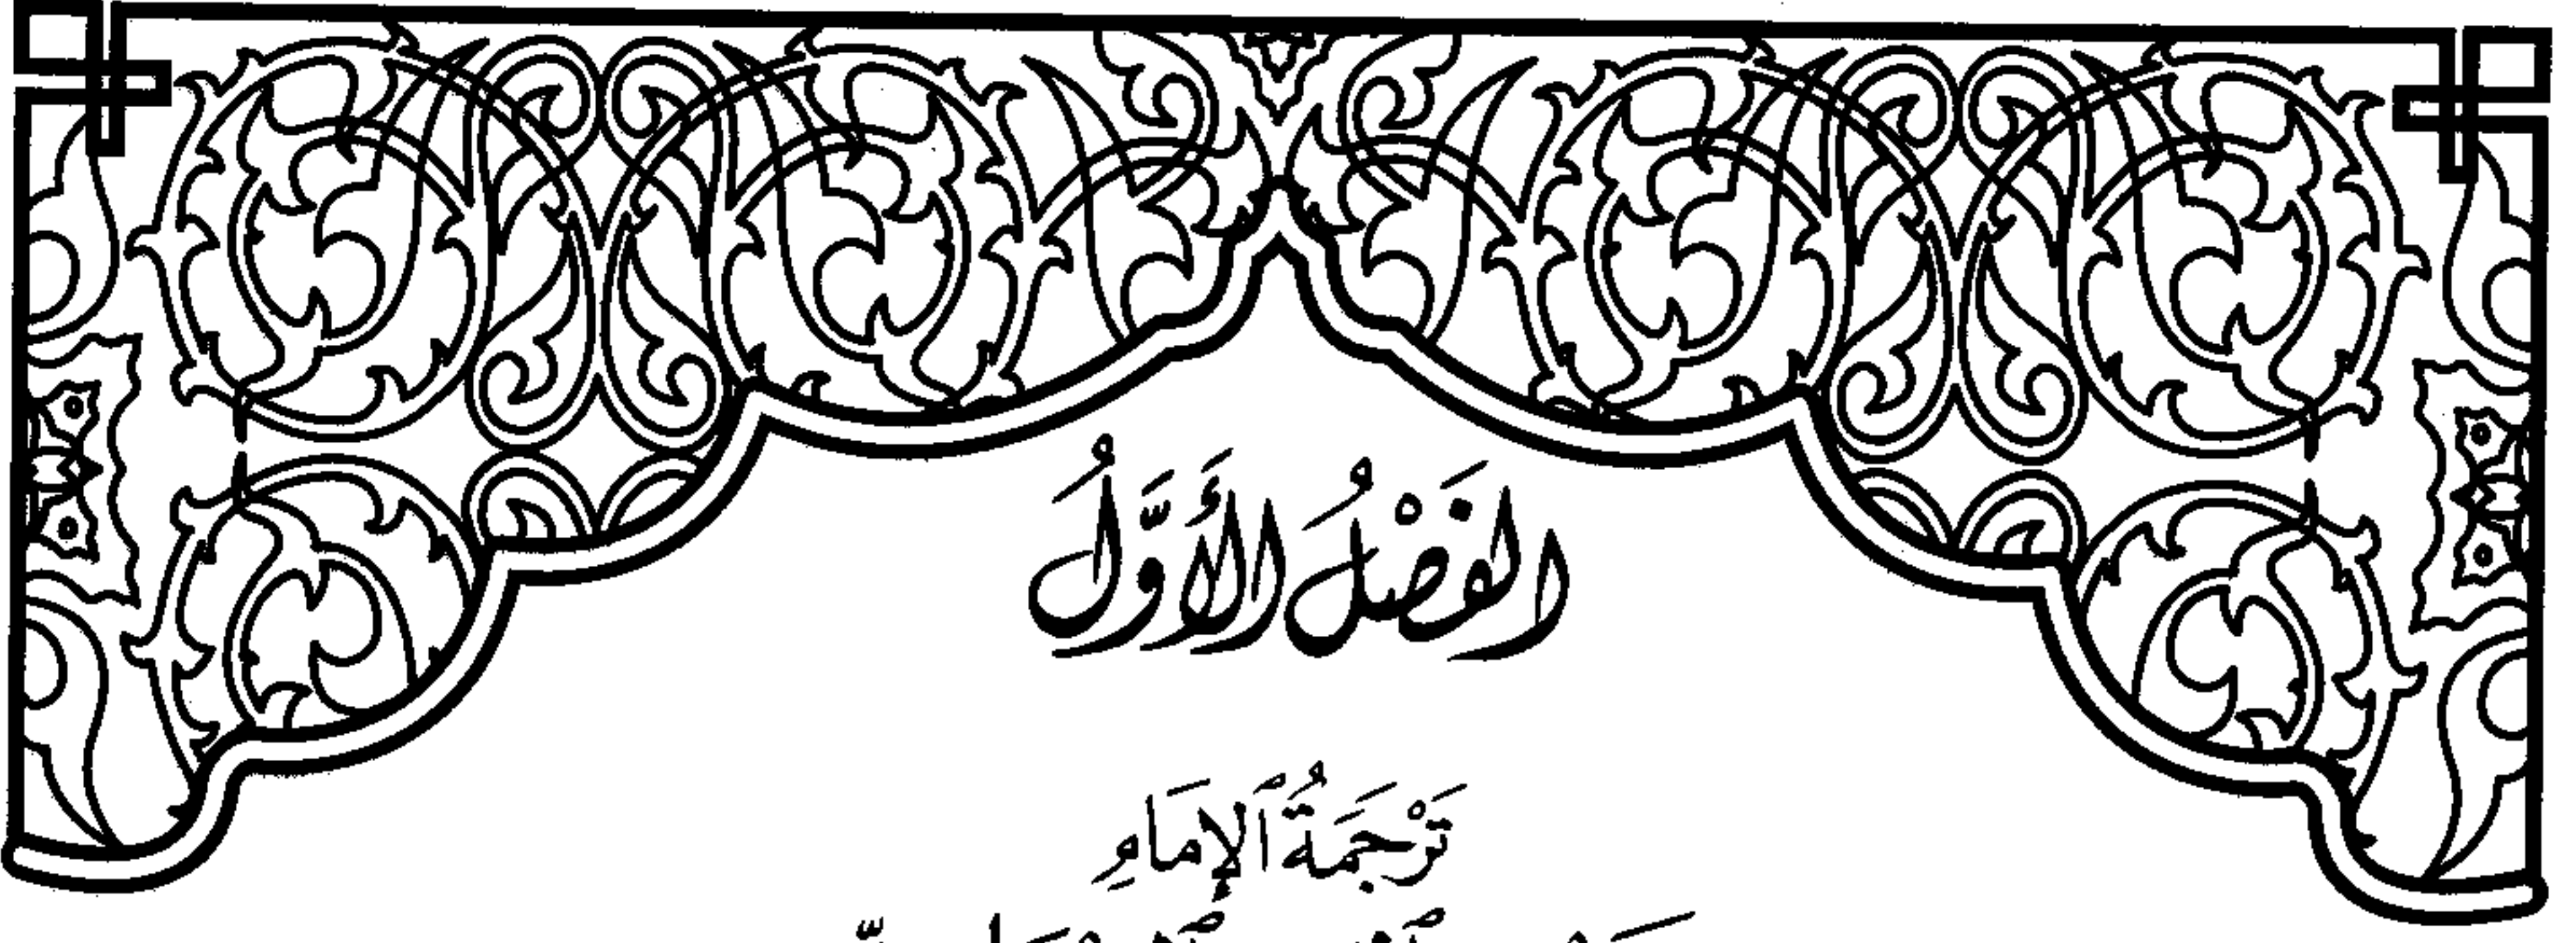 الفَصْلُ الأَوَّلُ
تَرْجَمَةُ ٱلإِمَامِ